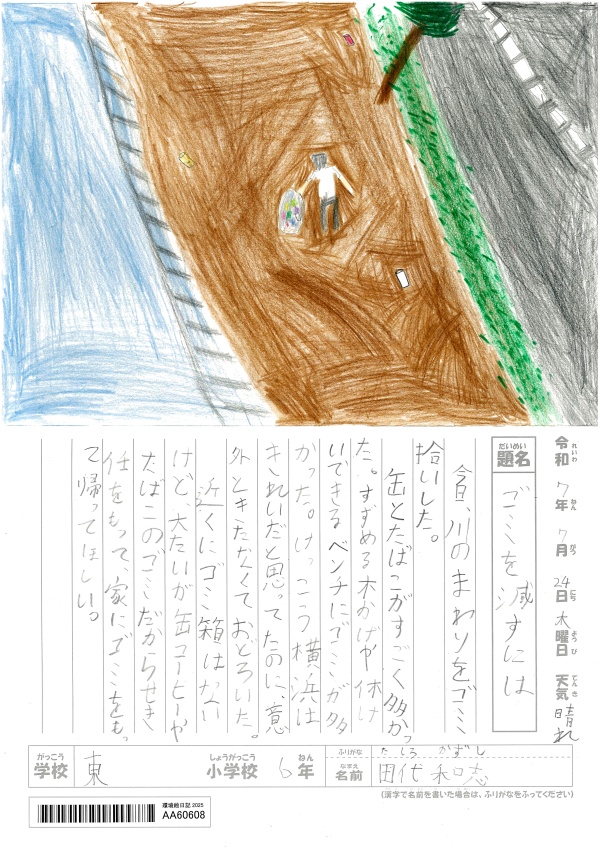 令和7年7月24日木曜日 天気 晴れ
れいわ ねん がつ にち ようび てんき
だいめい
題名 ゴミを減すには
今日、川のまわりをゴミ
拾いした。
缶とたばこがすごく多かっ
た。すずめる木かげや休け
いできるベンチにゴミが多
かった。けっこう横浜は
きれいだと思ってたのに、意
外ときたなくておどろいた。
近くにゴミ箱はない
けど、大たいが缶コーヒーや
たばこのゴミだからせき
任をもって、家にゴミをもっ
て帰ってほしい。
がっこう しょうがっこう ねん ふりがな たしろ かずし
学校 東 小学校 6年 なまえ 名前 田代 和志
(漢字で名前を書いた場合は、ふりがなをふってください)
環境絵日記 2025
AA60608